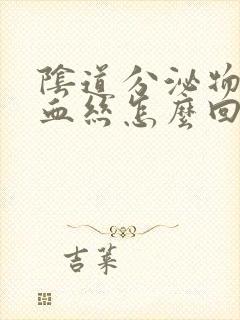 陰道分泌物
血絲怎麼回
吉萊